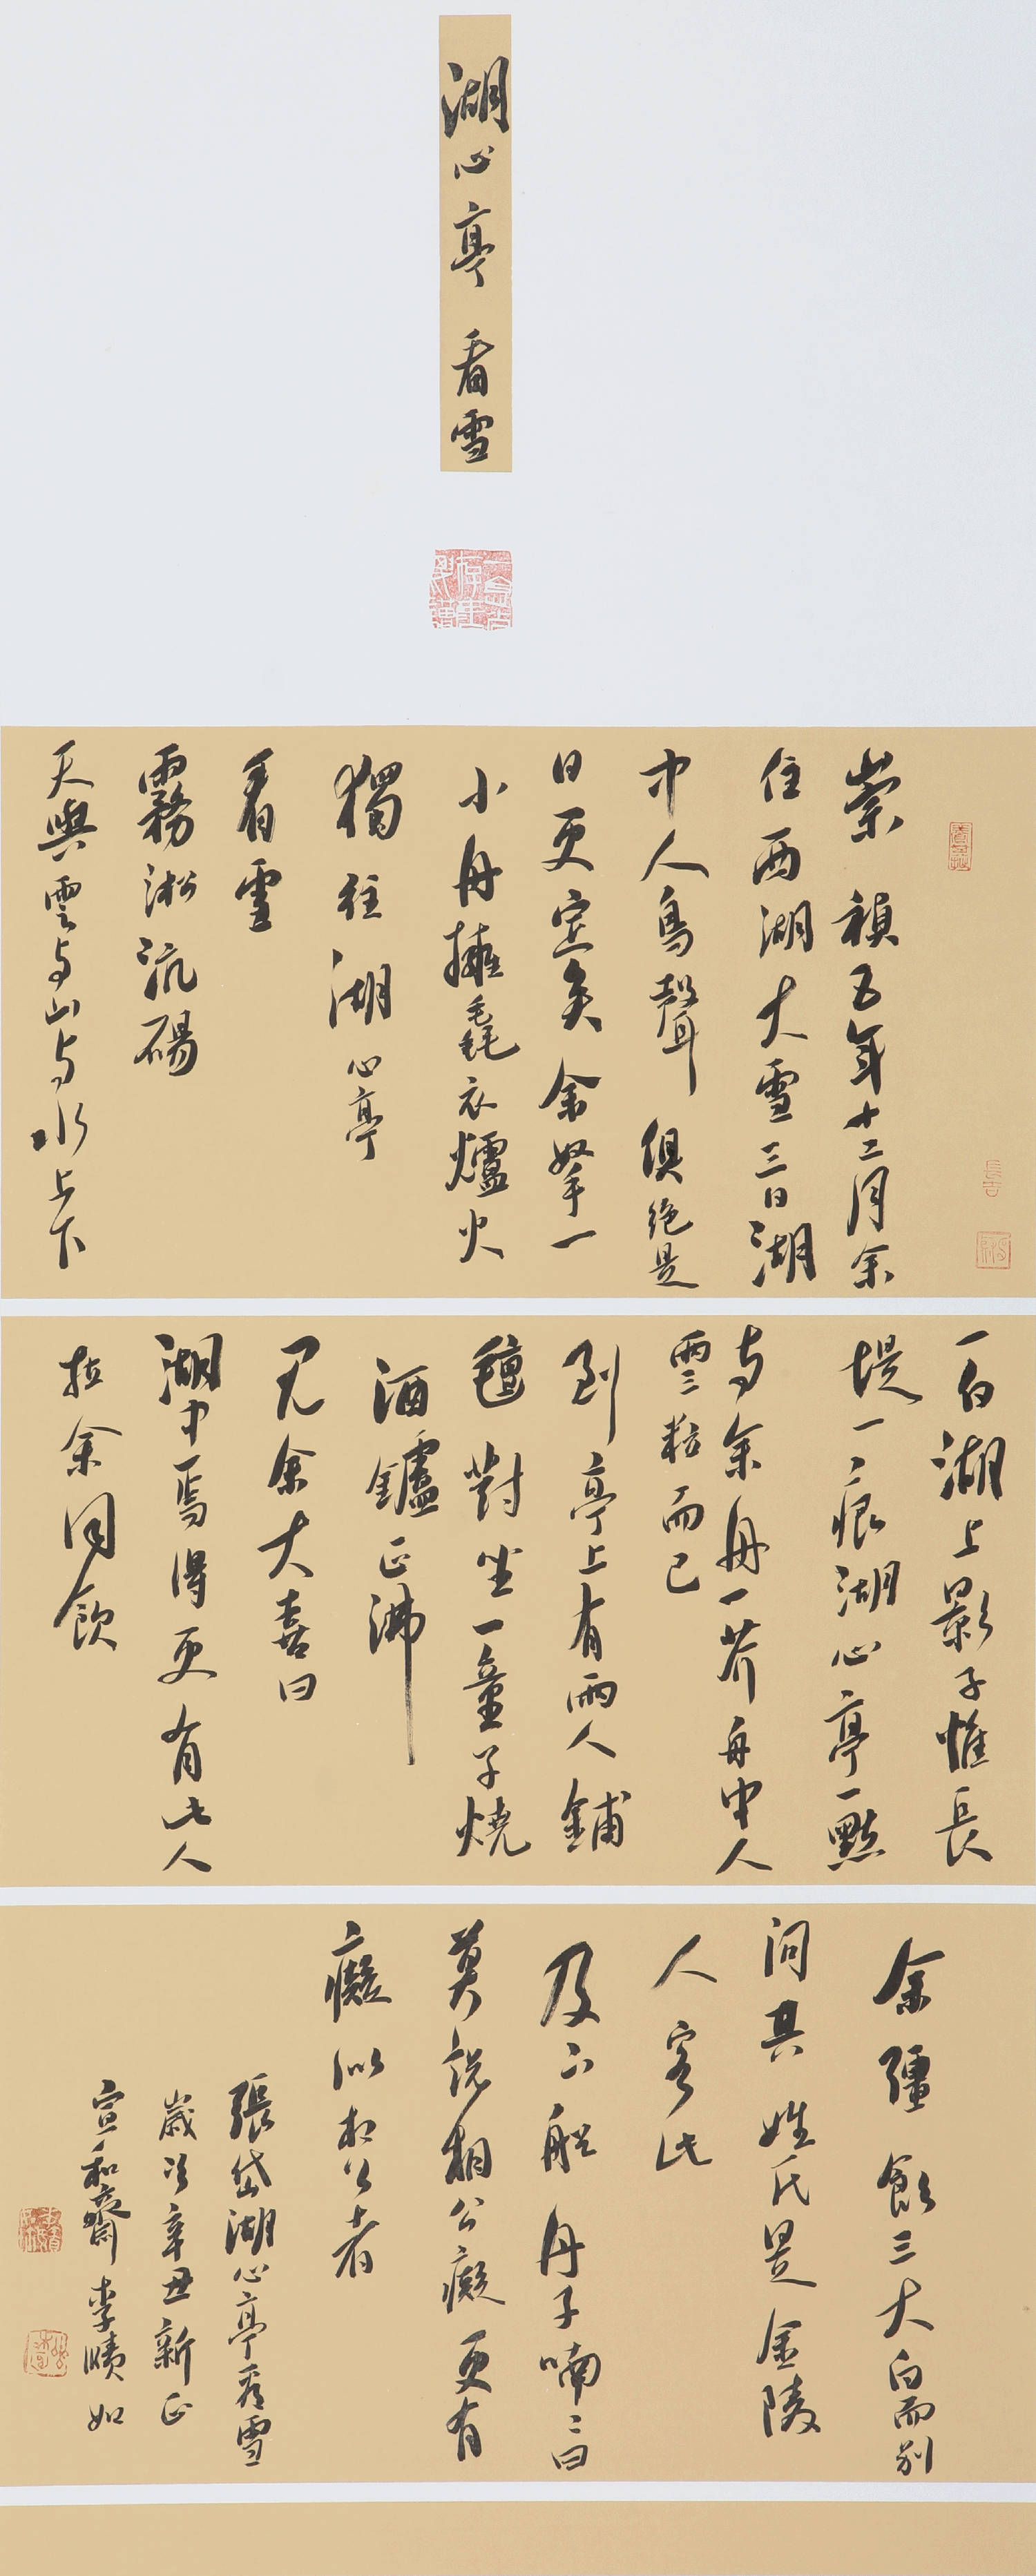 湖心亭看雪
崇禎五年十二月余
住西湖大雪三日湖
中人鳥聲俱絕是
日更定矣余拏一
小舟擁毳衣爐火
獨往湖心亭
看雪
霧淞沆碭
天與雲與山與水上下
一白湖上影子惟長
堤一痕湖心亭一點
與余舟一芥舟中人
兩三粒而已
到亭上有兩人鋪
氈對坐一童子燒
酒鑪正沸
見余大喜曰
湖中焉得更有此人
拉余同飲
余彊飲三大白而別
問其姓氏是金陵
人客此
及下船舟子喃喃曰
莫說相公癡更有
癡似相公者
張岱湖心亭看雪
歲次辛丑新正
宣和齋李牘如